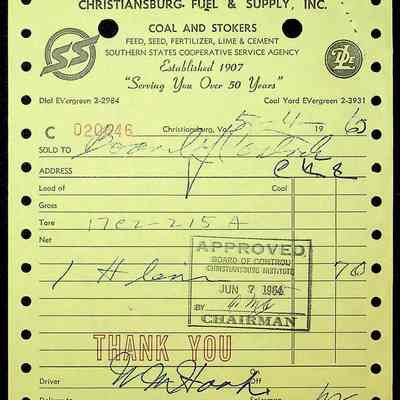 CHRISTIANSBURG FUEL & SUPPLY, INC.
COAL AND STOKERS
FEED, SEED, FERTILIZER, LIME & CEMENT
SOUTHERN STATES COOPERATIVE SERVICE AGENCY
SS
Established 1907
"Serving You Over 50 Years"
Dial EVergreen 2-2984 Coal Yard EVergreen 2-3931
C 020046 Christiansburg, Va. 5-4 19 65
SOLD TO
ADDRESS
Load of Coal
Gross
Tare 1702-215 A
Net
APPROVED
BOARD OF CONTROL
CHRISTIANSBURG INSTITUTE
1 70
JUN 7
BY
CHAIRMAN
THANK YOU
Driver Off
Deliver to Salesman